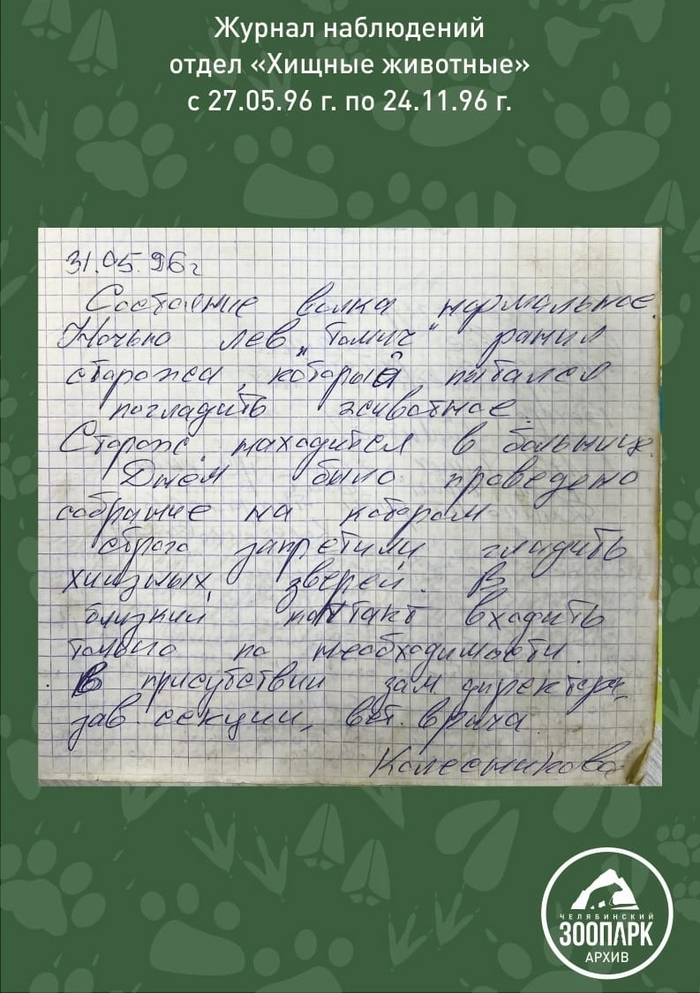 Журнал наблюдений
отдел «Хищные животные»
с 27.05.96 г. по 24.11.96 г.
31.05.96 г
Состояние волка нормальное.
Ночью лев „Томич" ранил
сторожа, который пытался
погладить животное.
Сторож находится в больнице.
Днём было проведено
собрание на котором
строго запретили гладить
хищных зверей. В
близкий контакт входить
только по необходимости.
В присутствии зам директора,
зав. секции, вет. врача.
Колесникова
ЧЕЛЯБИНСКИЙ
ЗООПАРК
АРХИВ